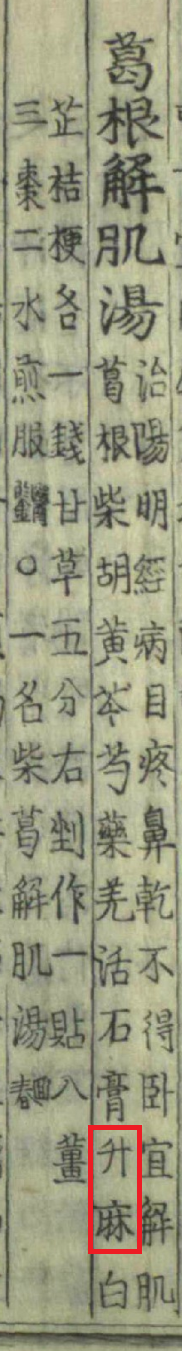 葛根解肌湯
治陽明經病目疼鼻乾不得卧宜解肌
葛根柴胡黃芩芍藥羌活石膏升麻白
芷桔梗各一錢甘草五分右剉作一貼入薑
三棗二水煎服醫鑑○一名柴葛解肌湯回春